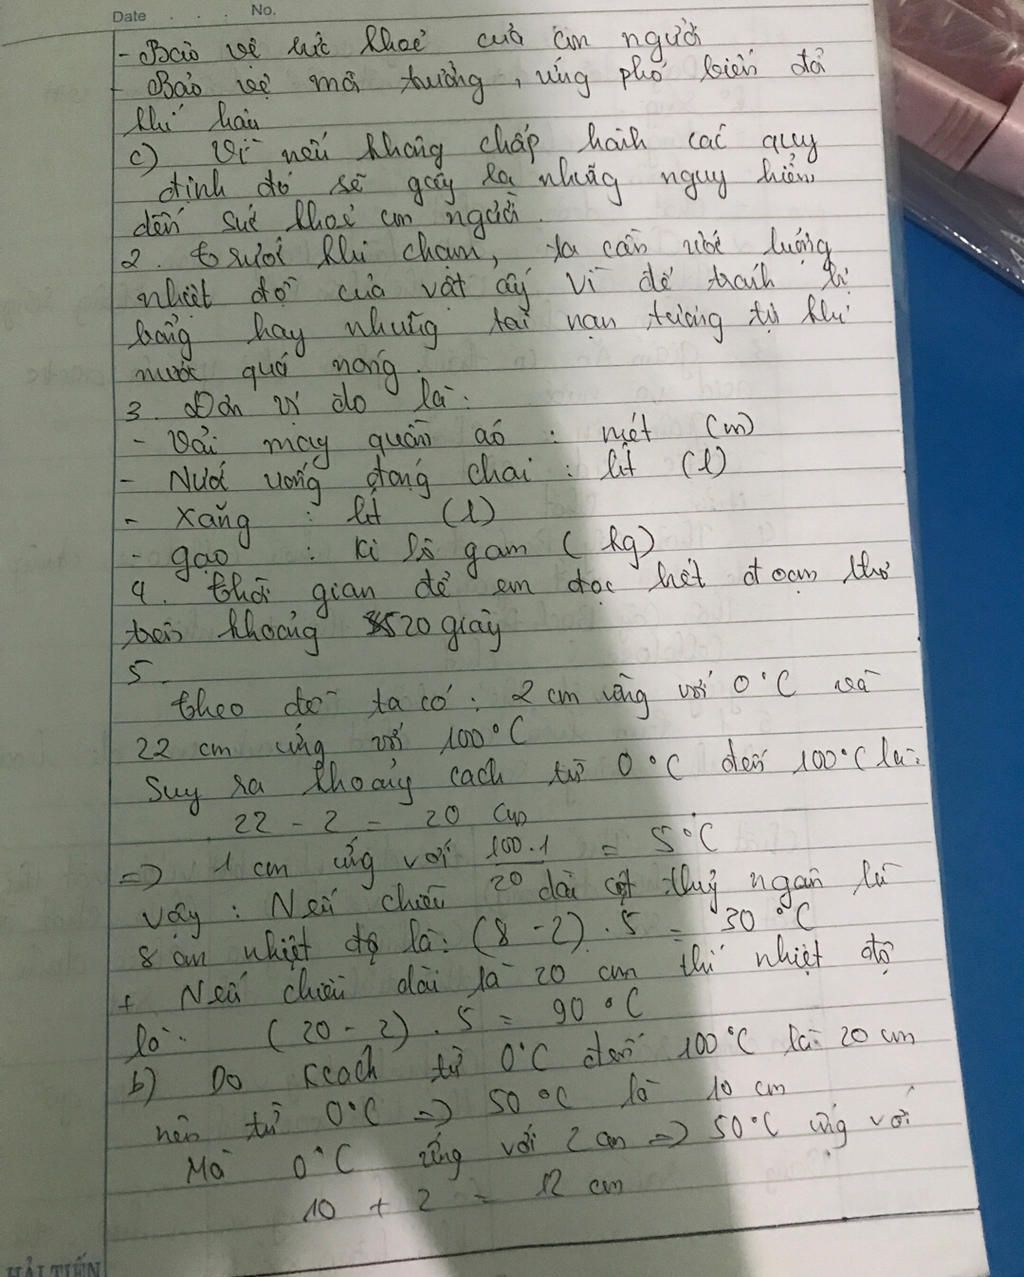 Date . . . No.
- Bảo vệ sức khoẻ của con người
- Bảo vệ môi trường, ứng phó biến đổi
khí hậu
c) Vì nếu không chấp hành các quy
định đó sẽ gây ra những nguy hiểm
đến sức khoẻ con người.
2. trước khi chạm, ta cần ước lượng
nhiệt độ của vật ấy vì để tránh bị
bỏng hay những tai nạn tương tự khi
nước quá nóng.
3. Đơn vị đo là:
- Vải may quần áo : mét (m)
- Nước uống đóng chai : lít (l)
- Xăng : lít (l)
- gạo : ki lô gam (kg)
4. thời gian để em đọc hết đoạn thơ
trên khoảng 20 giây
5.
theo đề ta có : 2 cm ứng với 0°C và
22 cm ứng với 100°C
Suy ra khoảng cách từ 0°C đến 100°C là:
22 - 2 = 20 cm
=> 1 cm ứng với 100.1 / 20 = 5°C
Vậy : Nếu chiều dài cột thuỷ ngân là
8 cm nhiệt độ là: (8 - 2) . 5 = 30°C
+ Nếu chiều dài là 20 cm thì nhiệt độ
là: (20 - 2) . 5 = 90°C
b) Do kcách từ 0°C đến 100°C là 20 cm
nên từ 0°C => 50°C là 10 cm
Mà 0°C ứng với 2 cm => 50°C ứng với
10 + 2 = 12 cm
HẢI TIẾN